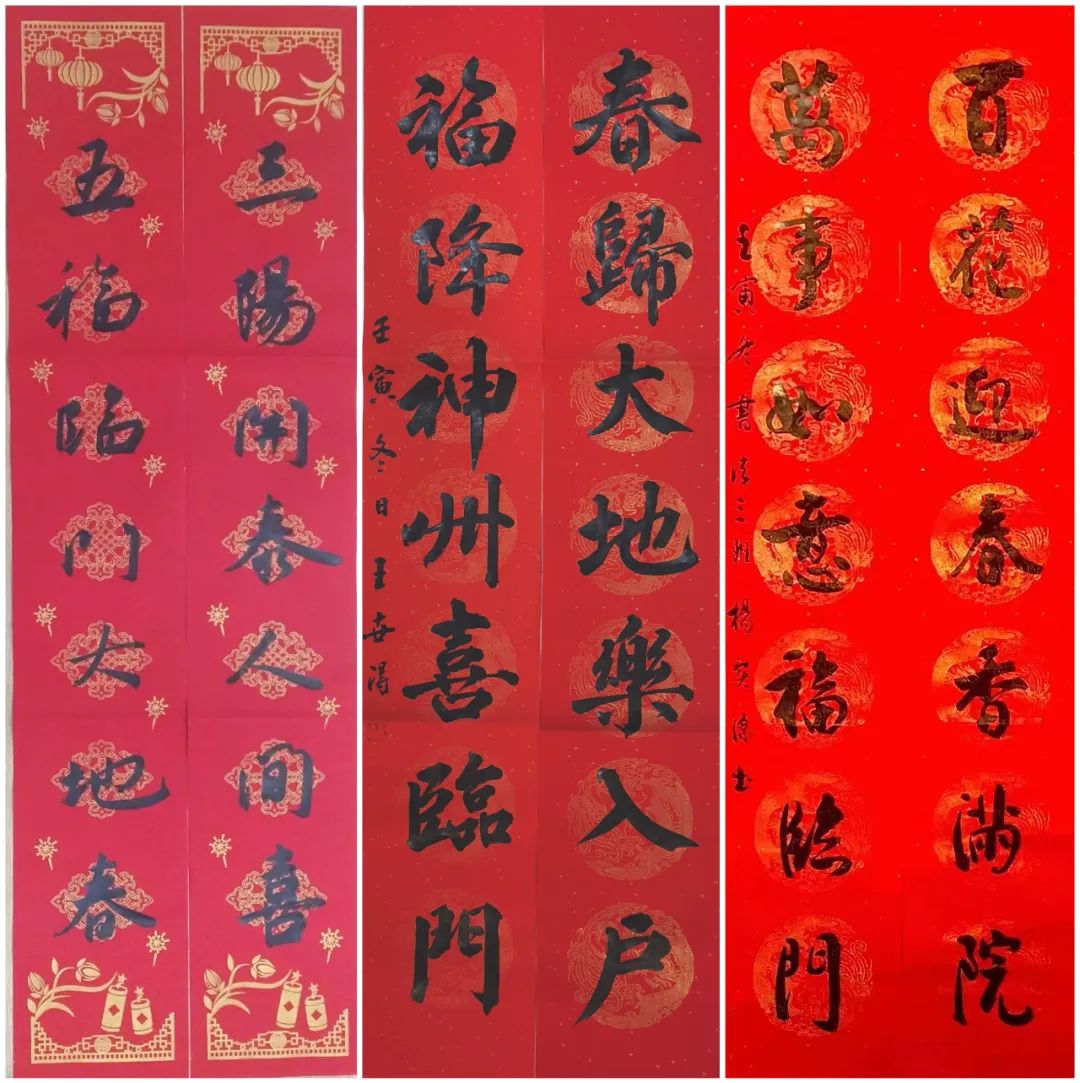 三陽開泰人間喜
五福臨門大地春
春歸大地樂入户
福降神州喜臨門
壬寅冬日王
百花迎春香滿院
萬事如意福臨門
壬寅冬書法三班楊